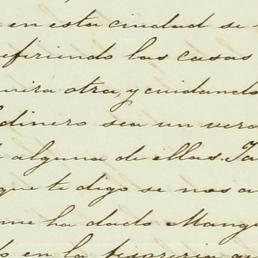 en esta ciudad se
efiriendo las casas
otra, y cuidando
dinero sea un ver
alguna de ellas. Ya
que te digo se nos a
me ha dado Mang
en la tesoreria qu